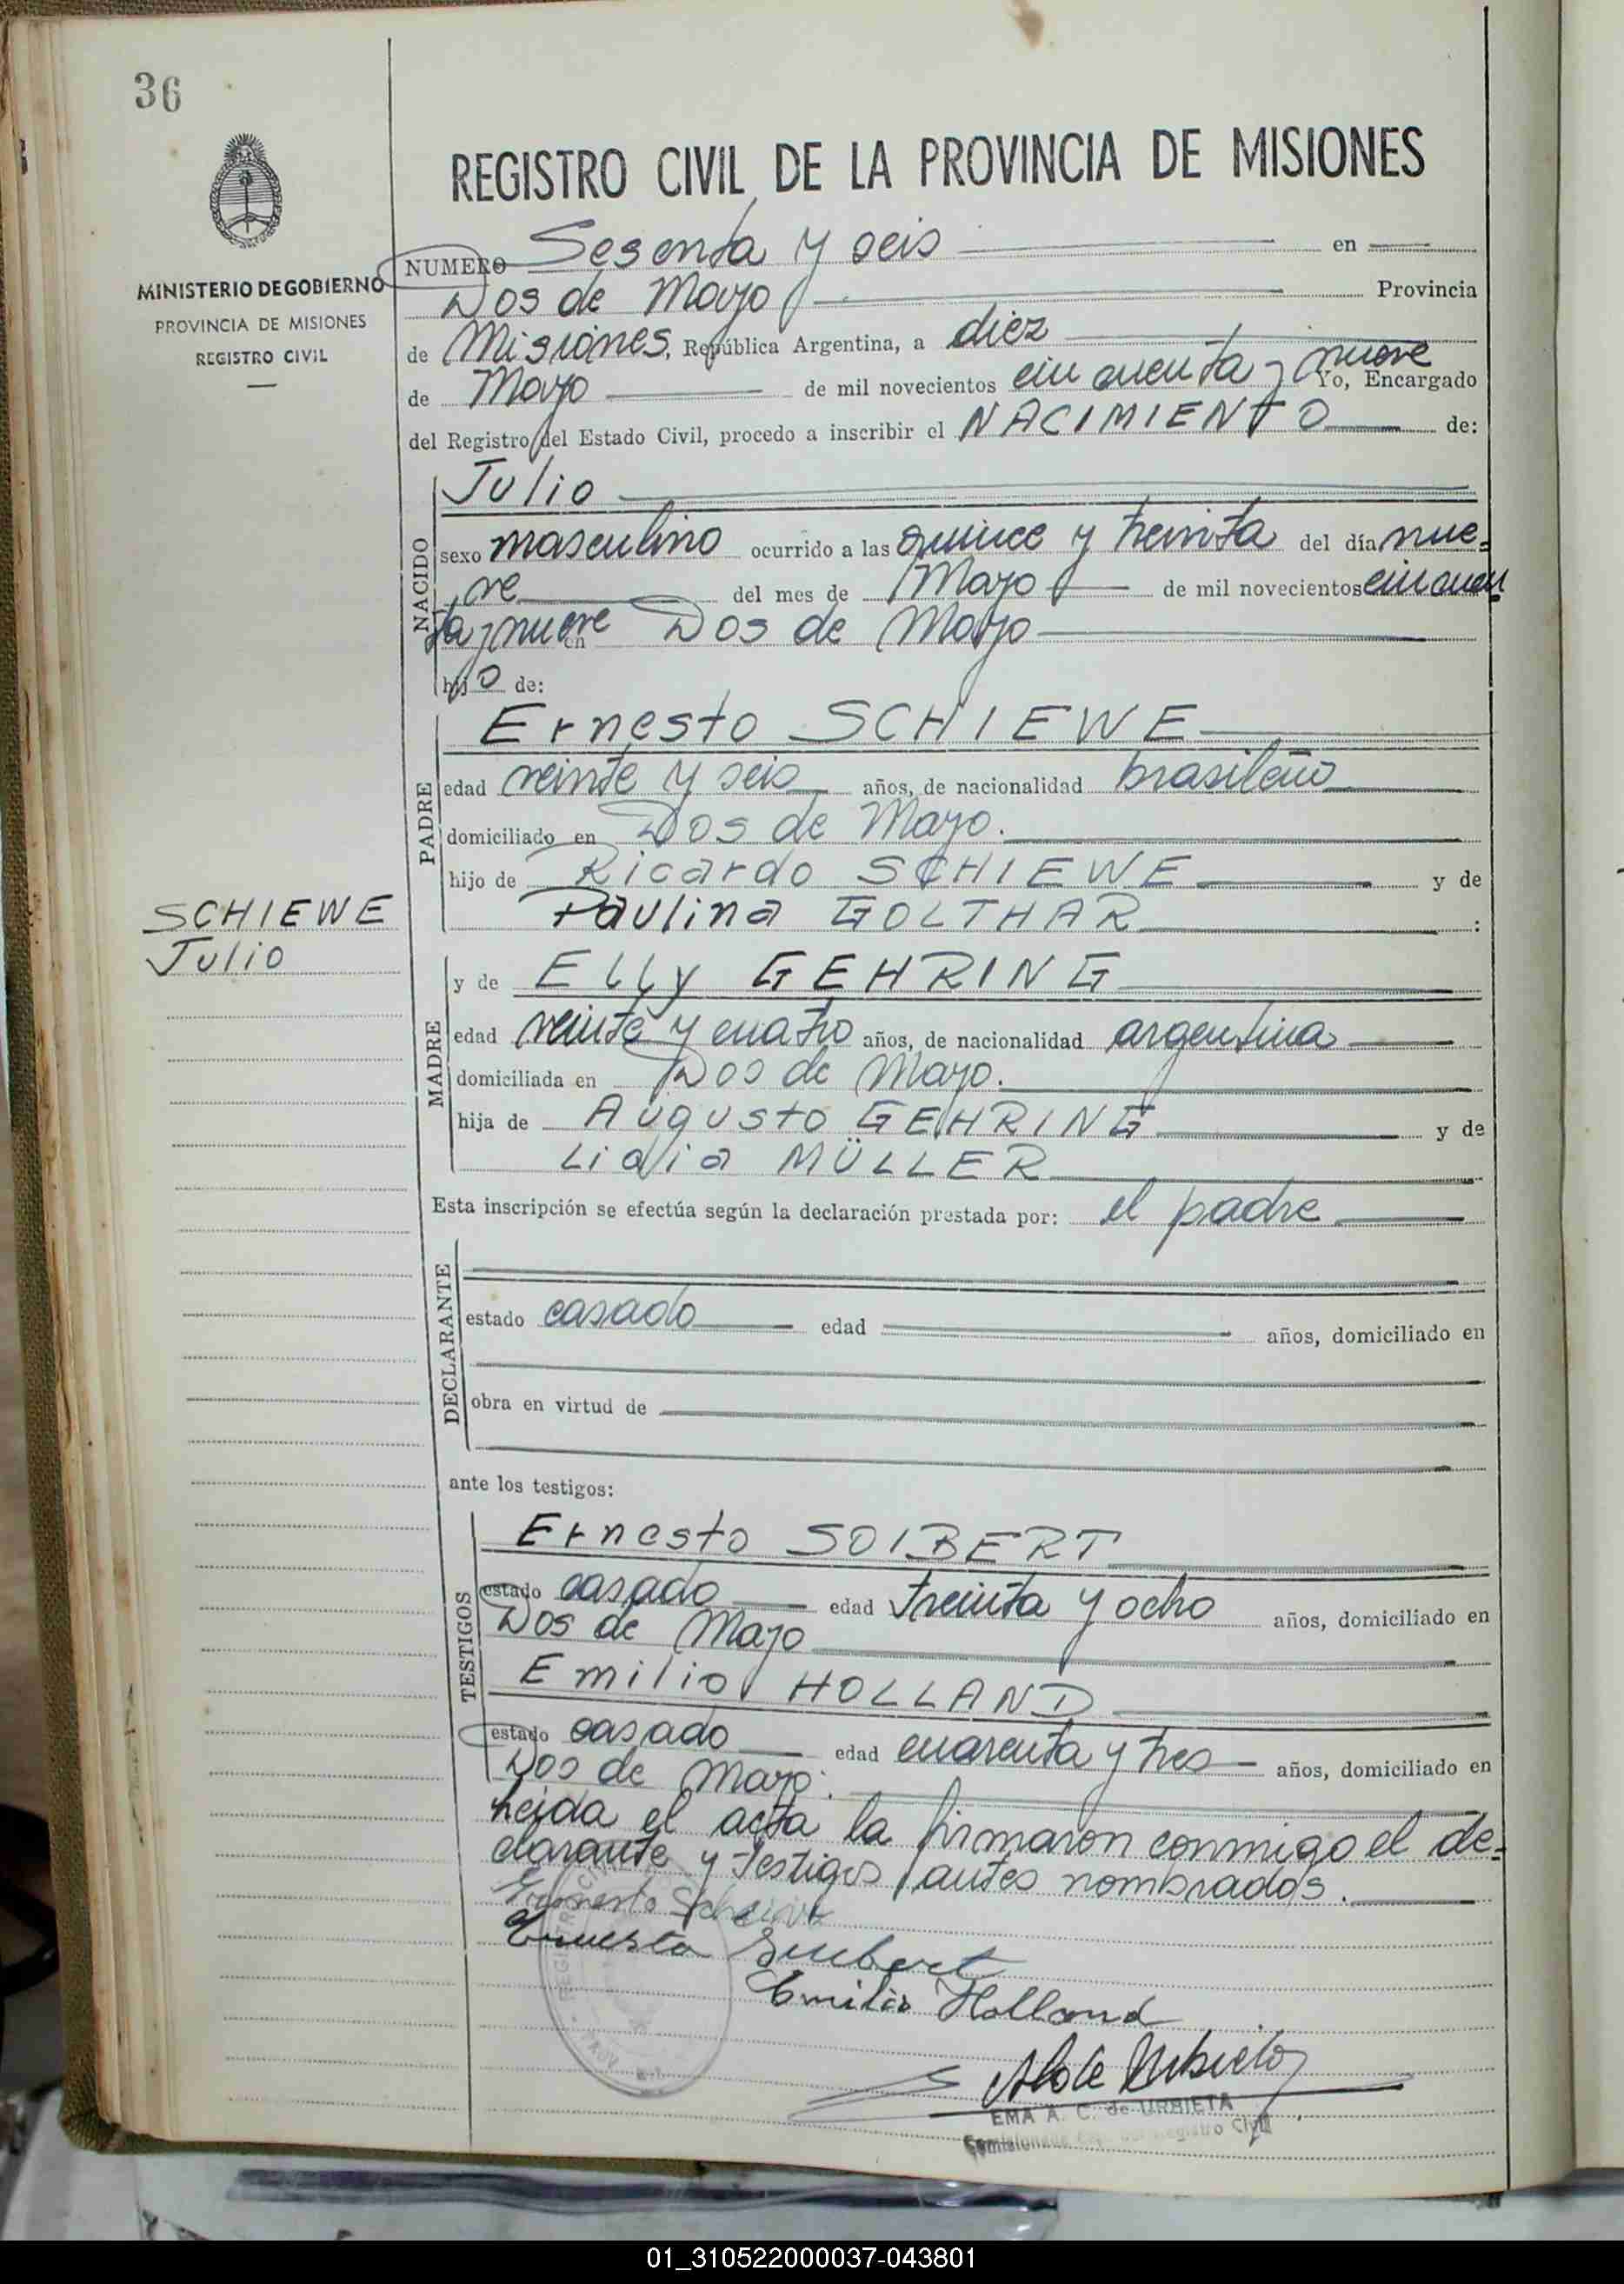 36
REGISTRO CIVIL DE LA PROVINCIA DE MISIONES
MINISTERIO DE GOBIERNO
PROVINCIA DE MISIONES
REGISTRO CIVIL
NUMERO Sesenta y seis en
Dos de Mayo Provincia
de Misiones, República Argentina, a diez
de Mayo de mil novecientos cincuenta y nueve Yo, Encargado
del Registro del Estado Civil, procedo a inscribir el NACIMIENTO de:
NACIDO
Julio
sexo masculino ocurrido a las quince y treinta del día nue=
ve del mes de Mayo de mil novecientos cincuen
ta y nueve en Dos de Mayo
hijo de:
PADRE
Ernesto SCHIEWE
edad veinte y seis años, de nacionalidad brasileño
domiciliado en Dos de Mayo.
hijo de Ricardo SCHIEWE y de
Paulina GOLTHAR :
SCHIEWE
Julio
MADRE
y de Elly GEHRING
edad veinte y cuatro años, de nacionalidad argentina
domiciliada en Dos de Mayo.
hija de Augusto GEHRING y de
Lidia MÜLLER
Esta inscripción se efectúa según la declaración prestada por: el padre
DECLARANTE
estado casado edad años, domiciliado en
obra en virtud de
ante los testigos:
TESTIGOS
Ernesto SOIBERT
estado casado edad treinta y ocho años, domiciliado en
Dos de Mayo
Emilio HOLLAND
estado casado edad cuarenta y tres años, domiciliado en
Dos de Mayo.
Leida el acta la firmaron conmigo el de=
clarante y testigos antes nombrados.
Ernesto
Ernesto Seubert
Emilio Holland
A C de Urbieta
EMA A. C. de URBIETA
Registro Civil
01_310522000037-043801